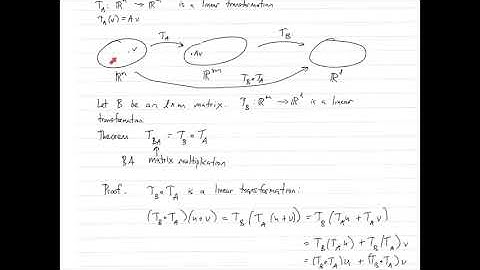 T_A : ℝⁿ → ℝᵐ is a linear transformation
T_A(v) = Av
T_A T_B
.v .Av
ℝⁿ ℝᵐ ℝˡ
T_B∘T_A
Let B be an l×m matrix. T_B : ℝᵐ → ℝˡ is a linear
transformation
Theorem T_BA = T_B ∘ T_A
BA matrix multiplication
Proof. T_B∘T_A is a linear transformation:
(T_B∘T_A)(u+v) = T_B(T_A(u+v)) = T_B(T_A u + T_A v)
= T_B(T_A u) + T_B(T_A)v
= (T_B∘T_A)u + (T_B∘T_A)v